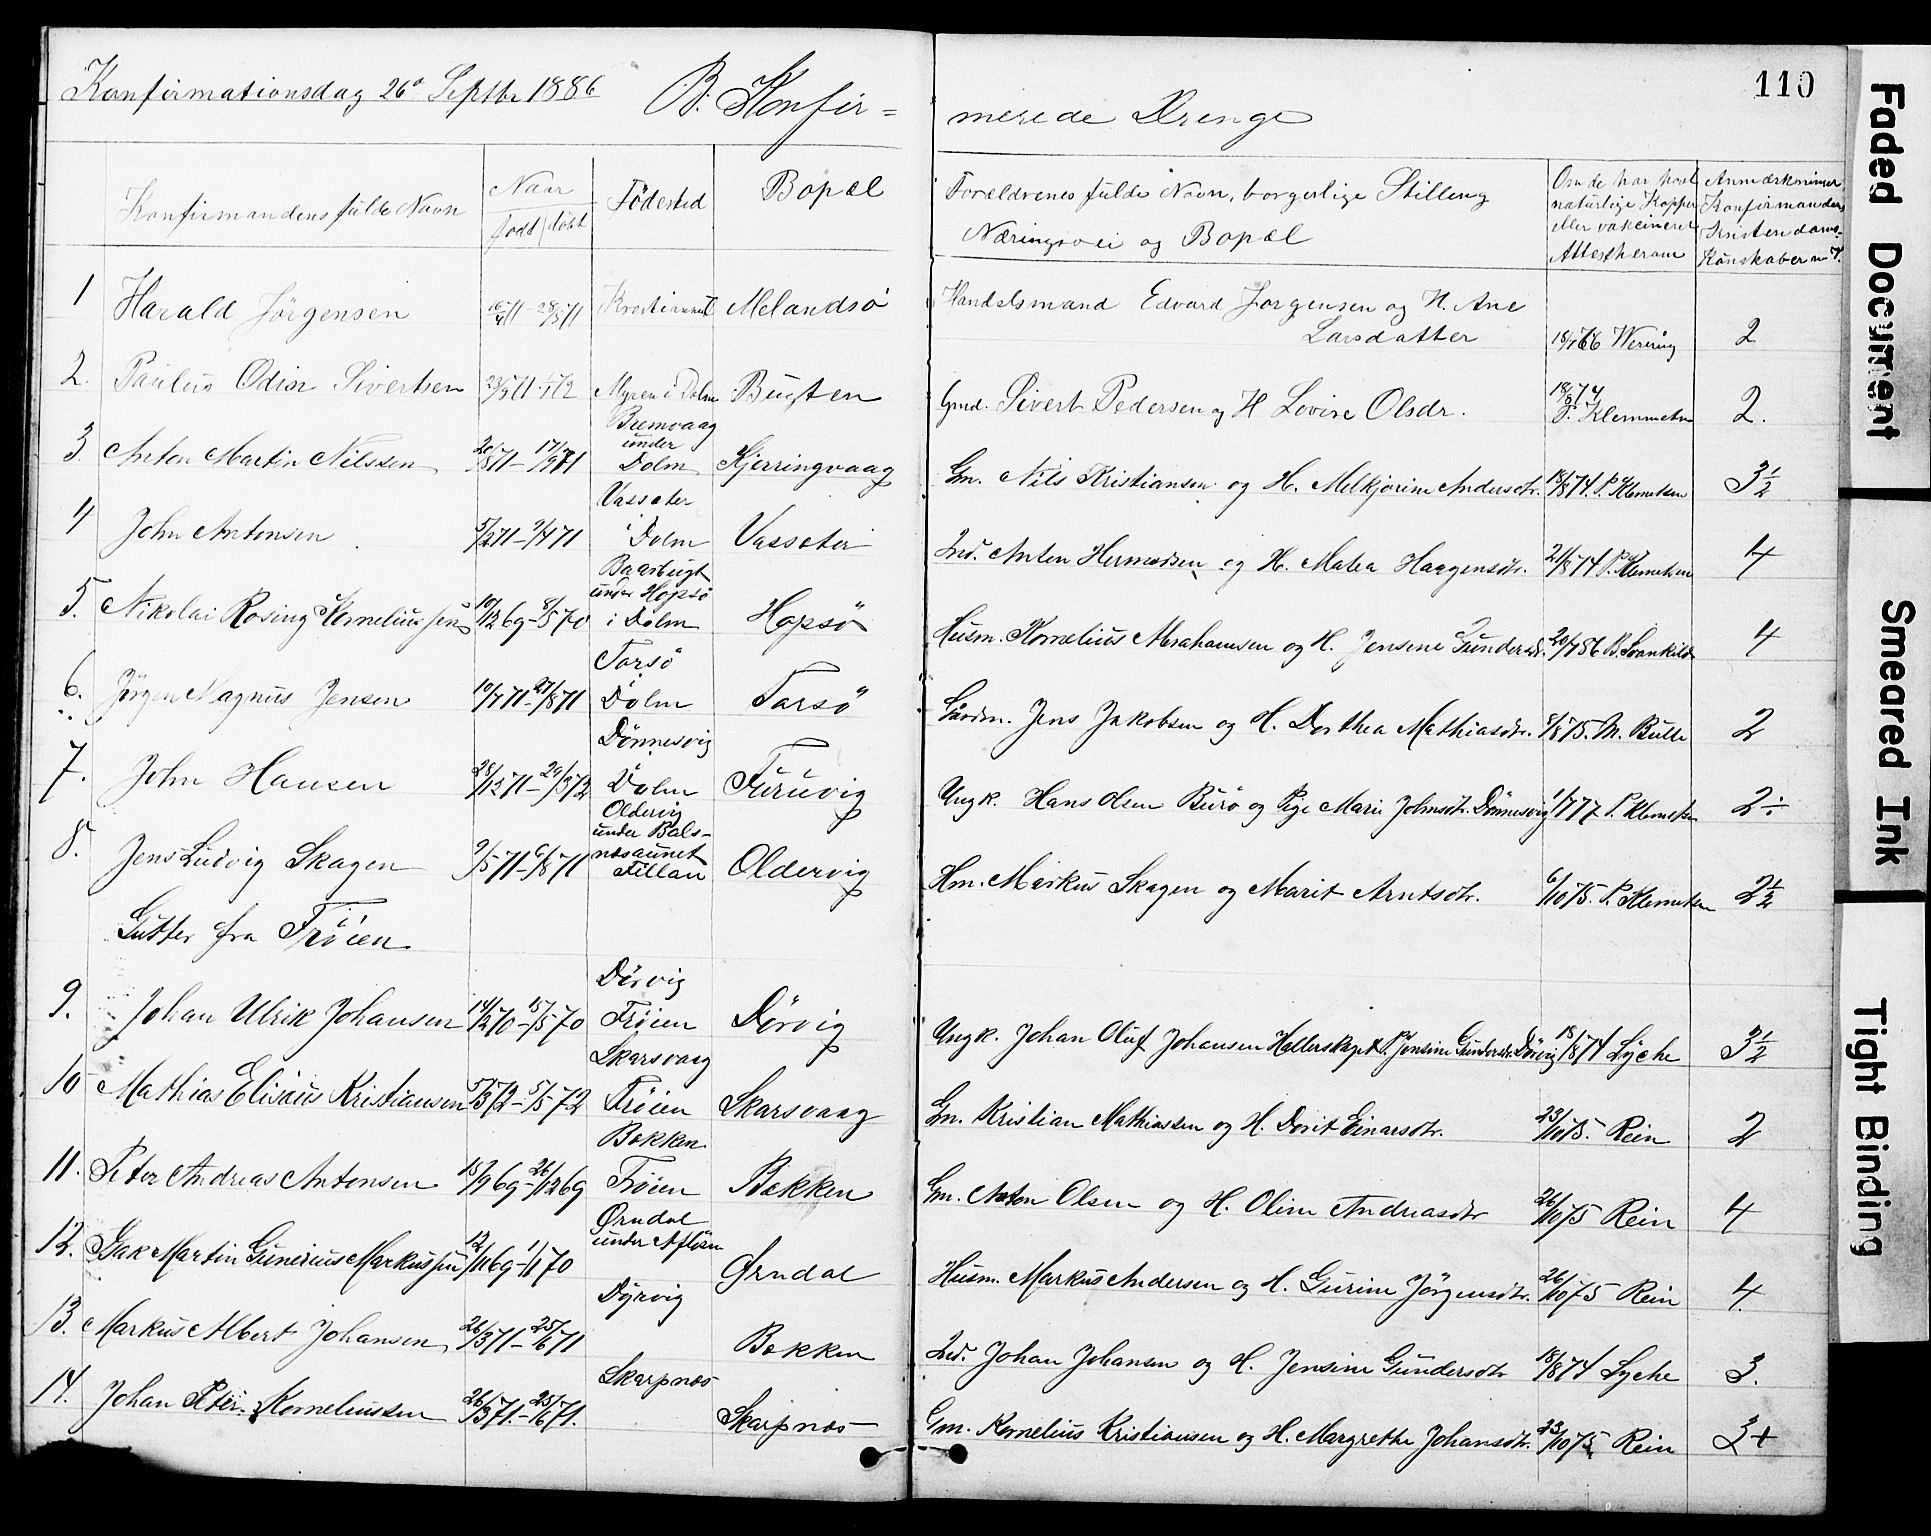 Konfirmationsdag 26d Septbr 1886 B. Konfir=
merede Drenge
110
Konfirmandens fulde Navn
Naar
født / døbt
Fødested
Bopæl
Forældrenes fulde Navn, borgerlige Stilling
Næringsvei og Bopæl
Om de har havt
naturlige Kopper
eller vakcineret
Attest herom
Anmærkninger
Konfirmandens
Kristendoms-
Kundskaber m. V.
1 Harald Jörgensen 16/4 71 - 28/5 71 Melandsö Handelsmand Edvard Jorgensen og H. Ane
Larsdatter 2
2. Paulus Odin Sivertsen Myren i Dolm Bugten Gmd. Sivert Pedersen og H Lovise Olsdr. 18/8 74
P. Klemmetsen 2.
3. Anton Martin Nilssen 20/8 71 - 17/9 71 Bremvaag
under
Dolm Kjerringvaag Gm. Nils Kristiansen og H. Melkjorine Andersdtr. 18/8 74. P. Klemetsen 3½
4 John Antonsen 5/2 71 - 9/4 71 Vasseter
i
Dolm Vasseter Ind. Anton Hermodsen og H. Malea Haagensdtr. 21/8 74 P. Klemetsen 4
5. Nikolai Rosing Korneliussen 10/12 69 - 8/5 70 Baasbugt
under Hopsö
i Dolm Hopsö Husm. Kornelius Abrahamsen og H. Jensine Gundersdr. 20/7 86 B. Svankild 4
6. Jörgen Magnus Jensen 10/7 71 - 27/8 71 Tarsö
Dolm Tarsö Gaardm. Jens Jakobsen og H. Dorthea Mathiasdtr. 8/8 75. M. Bulle 2
7. John Hansen 28/12 71 - 29/3 72 Dönnesvig
Dolm Furuvig Ungk. Hans Olsen Burö og Pige Marie Johnsdtr. Dönnesvig 1/7 77 P. Klemetsen 2÷
8. Jens Ludvig Skagen 9/5 71 - 6/8 71 Oldervig
under Bals-
nesaunet
Fillan Oldervig Hm. Markus Skagen og Marit Arntsdtr. 6/10 75. P. Klemetsen 2½
Gutter fra Fröien
9. Johan Ulrik Johansen 14/2 70 - 15/5 70 Dörvig
Fröien Dörvig Ungk. Johan Oluf Johansen Hallerskaget P. Jensine Gundersdr. Dörvig 18/8 74 Lyche 3½
10 Mathias Elisæus Kristiansen 5/3 72 - 5/5 72 Skarsvaag
Fröien Skarsvaag Gm. Kristian Mathiassen og H. Dorit Einarsdtr. 23/10 75. Rein 2
11. Peter Andreas Antonsen 15/9 69 - 26/12 69 Bekken
Fröien Bekken Gm. Anton Olsen og H. Oline Andreasdtr 26/10 75 Rein 4
12. Isak Martin Gunerius Markussen 12/11 69 - 1/1 70 Ørndal
under Afløsen Ørndal Husm. Markus Andersen og H. Gurine Jörgensdtr. 26/10 75 Rein 4.
13. Markus Albert Johansen 26/3 71 - 25/6 71 Dyrvig Bekken Ind. Johan Johansen og H. Jensine Gundersdtr 18/8 74 Lyche 3.
14. Johan Peter Korneliussen 26/3 71. - 25/6 71. Skarpnes Skarpnes Gm. Kornelius Kristiansen og H. Margrethe Johansdtr. 23/10 75 Rein 3+
Faded Document
Smeared Ink
Tight Binding